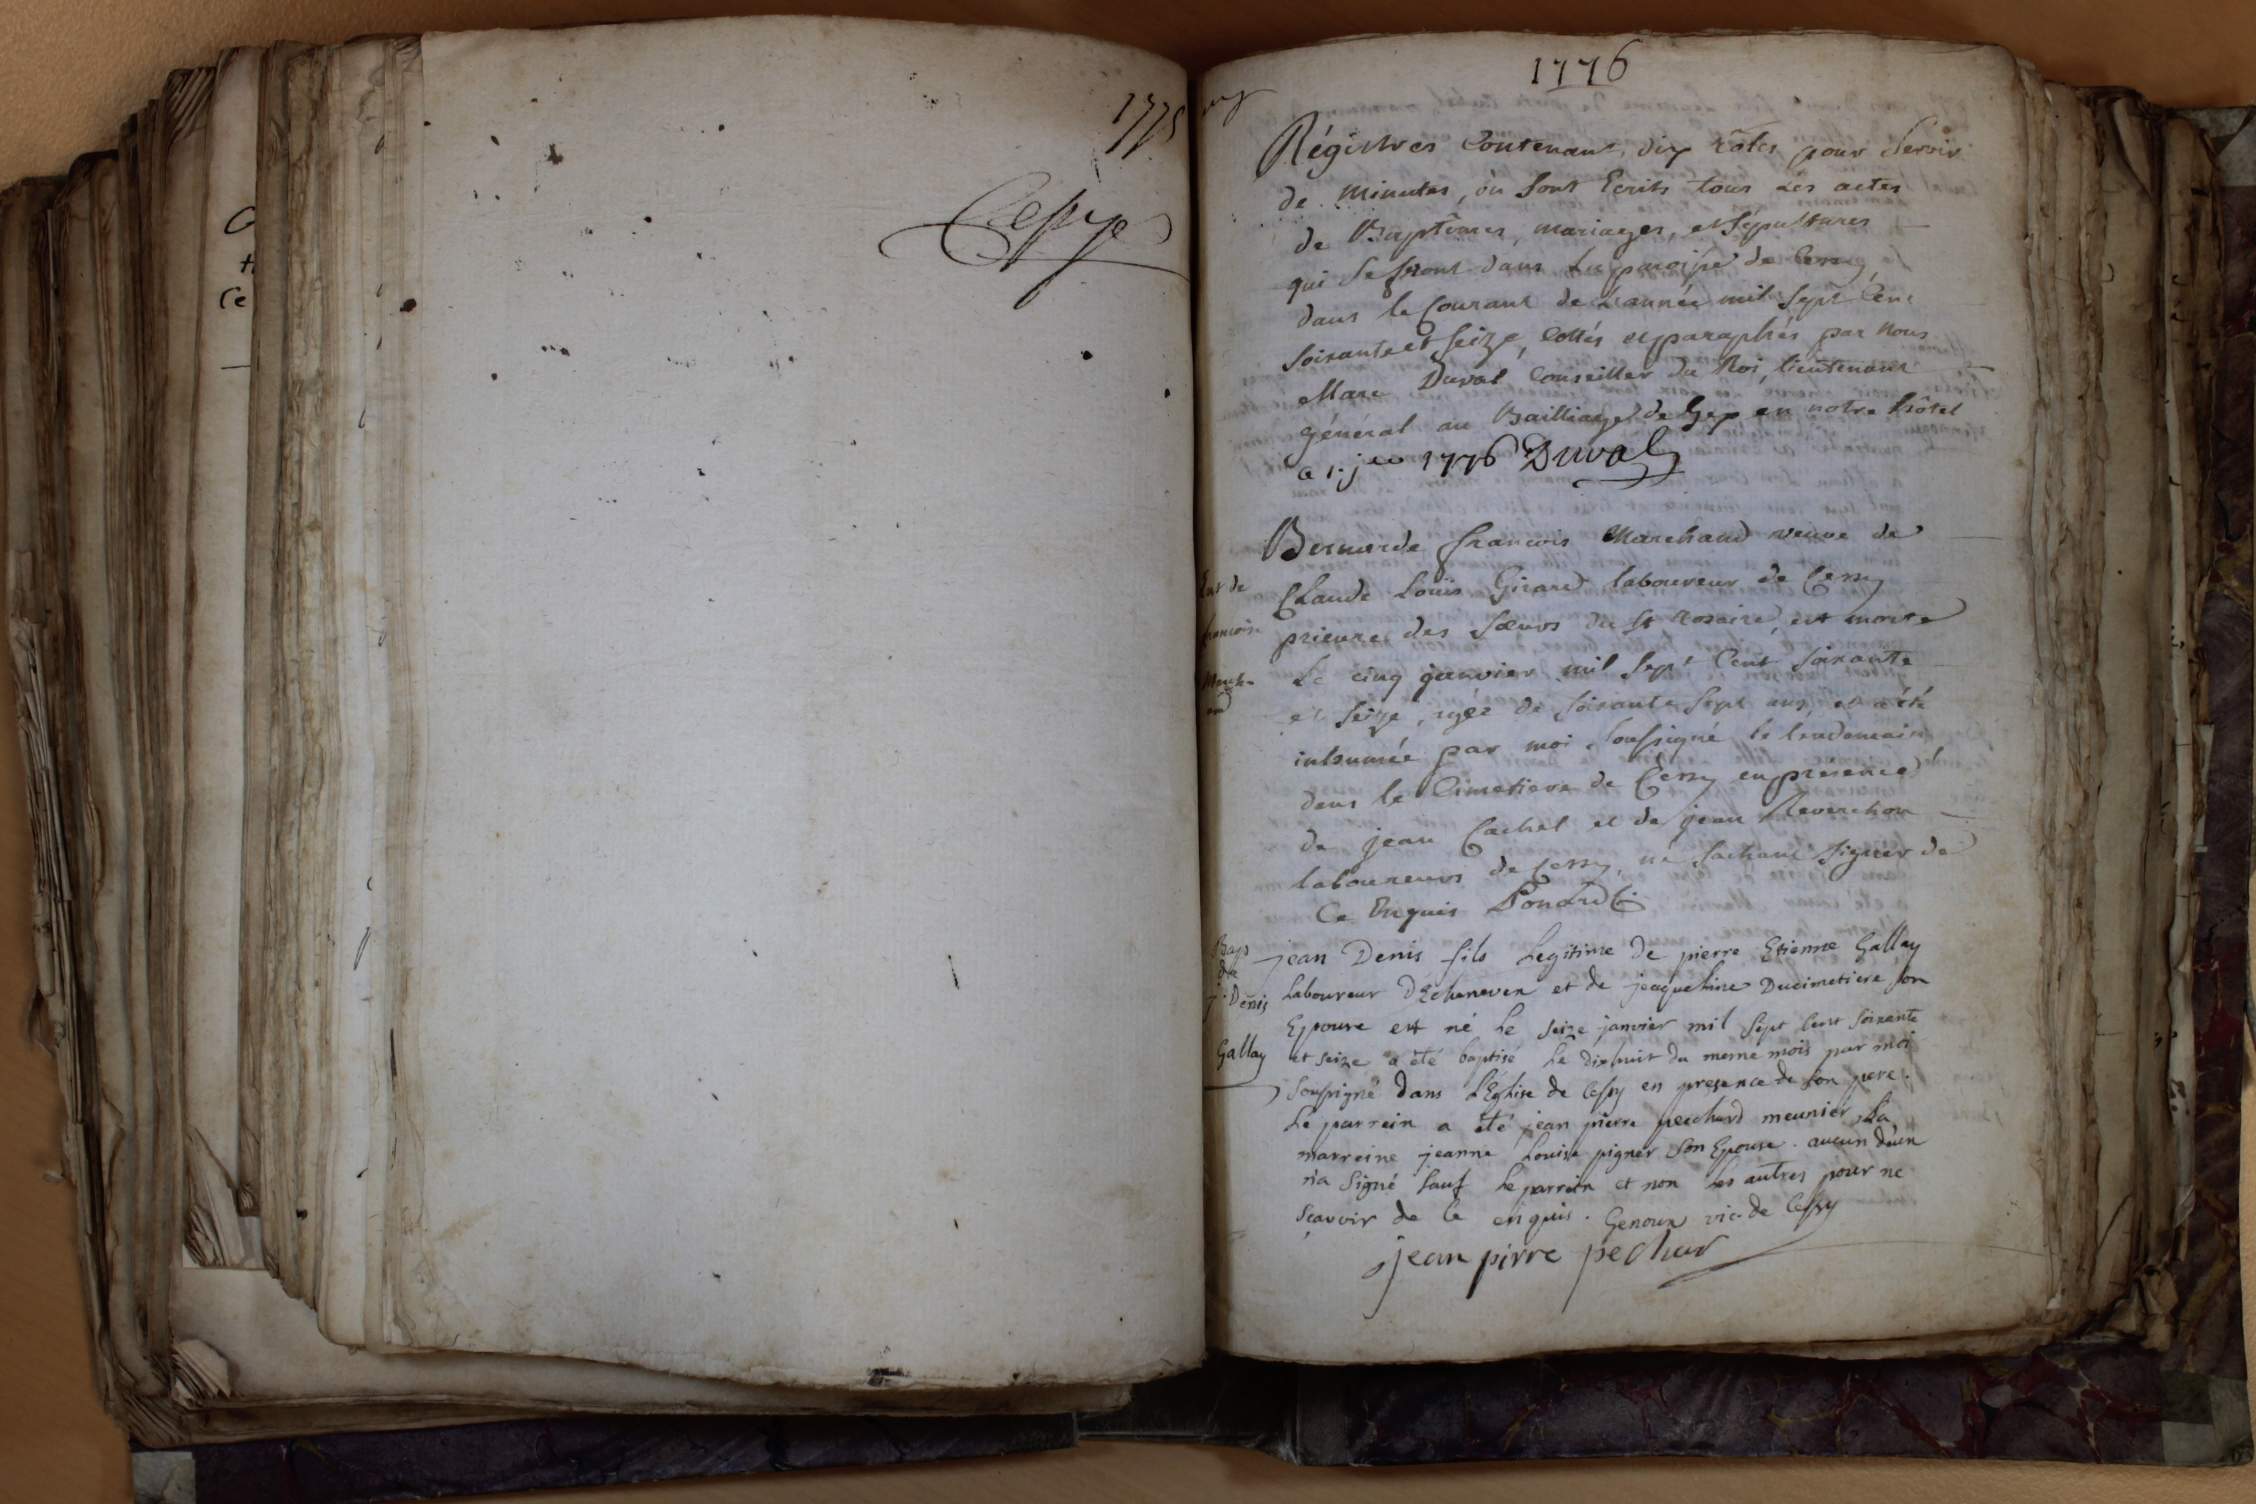 1775
Cessye
1776
Régistres Contenant dix rôles pour Servir
de minutes, où Sont Ecrits tous Les actes
de Baptêmes, mariages, et Sépultures
qui Se feront dans La paroisse de Cessy,
dans le Courant de L'année mil Sept Cent
Soixante et Seize, Cottés et paraphés par Nous
Marc Duval Conseiller du Roi, lieutenant
général au Bailliage de Gex en notre hôtel
a 1. jer 1776 Duval
Bernarde françois Marchand veuve de
Claude Louis Girard laboureur de Cessy
prieure des Sœurs du St Rosaire, est morte
Le cinq janvier mil Sept Cent Soixante
et Seize, agée de Soixante Sept ans, et a été
inhumée par moi Soussigné le lendemain
dans le Cimetiere de Cessy en présence
de jean Cachet et de jean Reverchon
laboureurs de Cessy, ne Sachant Signer de
Ce Enquis Ponard C.
Ent de
françoise
March-
and
Bap
de
j. Denis
Gallay
jean Denis fils Legitime de pierre Etienne Gallay
Laboureur D'Echenevex et de jeaqueline Ducimetiere Son
Epouse est né Le Seize janvier mil Sept Cent Soixante
et seize a été baptisé Le Dixhuit du meme mois par moi
Soussigné dans L'Eglise de Cessy en presence de Son pere.
Le parrein a été jean pierre pechard meunier, La
marreine jeanne Louise pigner Son Epouse. aucun d'eux
n'a Signé Sauf Le parrein et non Les autres pour ne
Sçavoir de Ce enquis. Genoux vic. de Cessy
jean pirre pechar